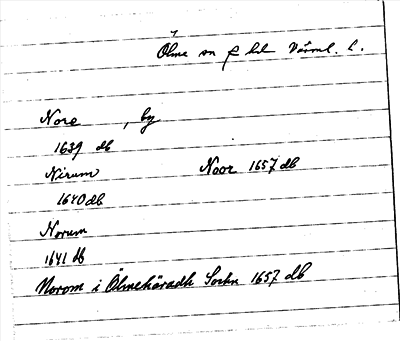 Ölme sn & hd Värml. l.
Nore, by
1639 db
Nirum Noor 1657 db
1640 db
Norum
1641 db
Norom i Ölmehäradh Sochn 1657 db